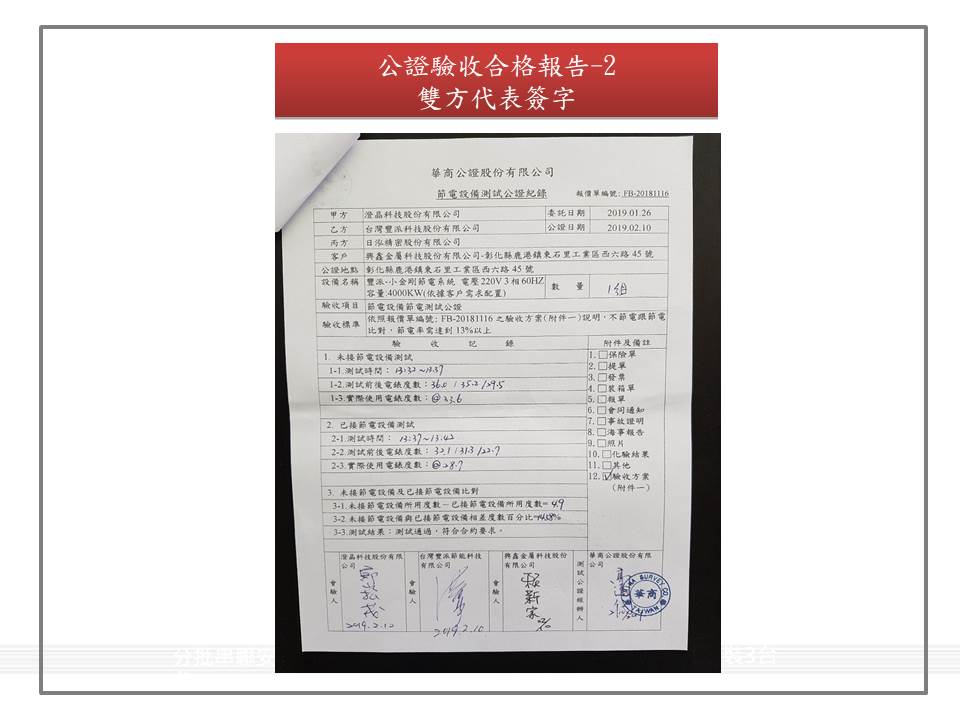 公證驗收合格報告-2
雙方代表簽字
華商公證股份有限公司
節電設備測試公證紀錄
報價單編號: FB-20181116
甲方 澄晶科技股份有限公司 委託日期 2019.01.26
乙方 台灣豐派科技股份有限公司 公證日期 2019.02.10
丙方 日泓精密股份有限公司
客戶 興鑫金屬科技股份有限公司-彰化縣鹿港鎮東石里工業區西六路 45 號
公證地點 彰化縣鹿港鎮東石里工業區西六路 45 號
設備名稱 豐派-小金剛節電系統 電壓 220V 3 相 60HZ
容量:4000KW(依據客戶需求配置) 數 量 1組
驗收項目 節電設備節電測試公證
驗收標準 依照報價單編號: FB-20181116 之驗收方案(附件一)說明,不節電跟節電
比對,節電率需達到 13%以上
驗 收 記 錄 附件及備註
1. 未接節電設備測試
1-1.測試時間: 13:32~13:37
1-2.測試前後電錶度數: 36.0 / 35.2 / 29.5
1-3.實際使用電錶度數:
2. 已接節電設備測試
2-1.測試時間: 13:37~13:42
2-2.測試前後電錶度數: 32.1 / 31.3 / 22.7
2-3.實際使用電錶度數:@28.7
3. 未接節電設備及已接節電設備比對
3-1.未接節電設備所用度數-已接節電設備所用度數= 4.9
3-2.未接節電設備與已接節電設備相差度數百分比=
3-3.測試結果:測試通過,符合合約要求。
1.□保險單
2.□提單
3.□發票
4.□裝箱單
5.□報單
6.□會同通知
7.□事故證明
8.□海事報告
9.□照片
10.□化驗結果
11.□其他
12.☑驗收方案
(附件一)
會驗人 澄晶科技股份有限
公司
2019.2.10
會驗人 台灣豐派節能科技
有限公司
2019.2.10
會驗人 興鑫金屬科技股份
有限公司
測試公證經辦人 華商公證股份有限
公司
SURVEY CO.
華商
TAIWAN